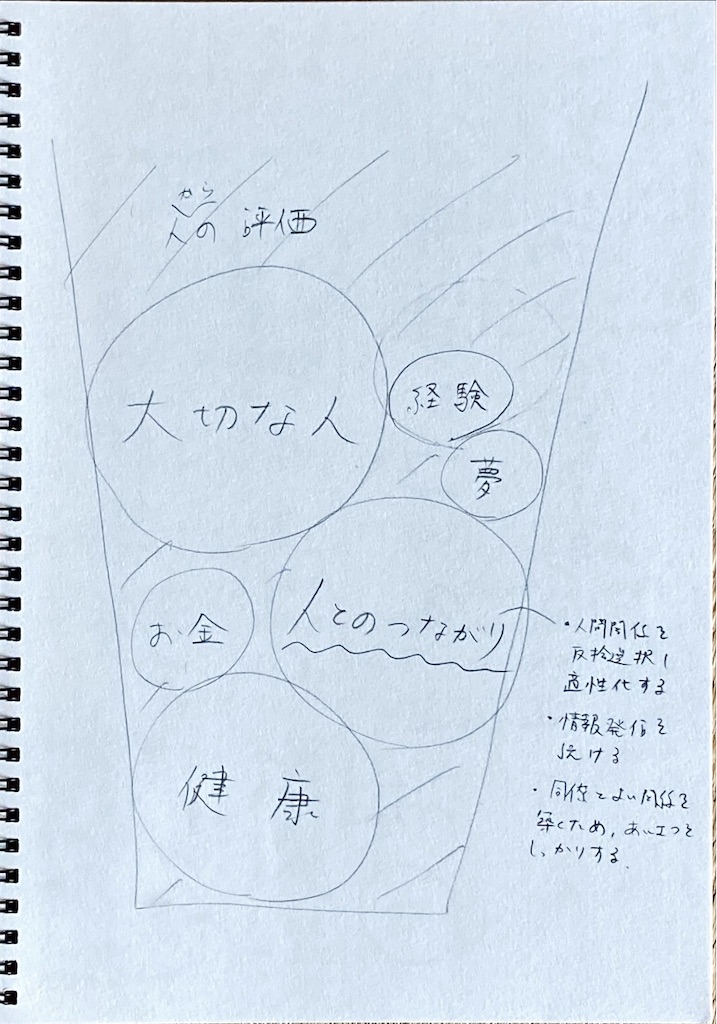 から
人の 評価
大切な人
経験
夢
お金
人とのつながり
健康
・人間関係を
取捨選択し
適性化する
・情報発信を
続ける
・同僚とよい関係を
築くため、あいさつを
しっかりする。